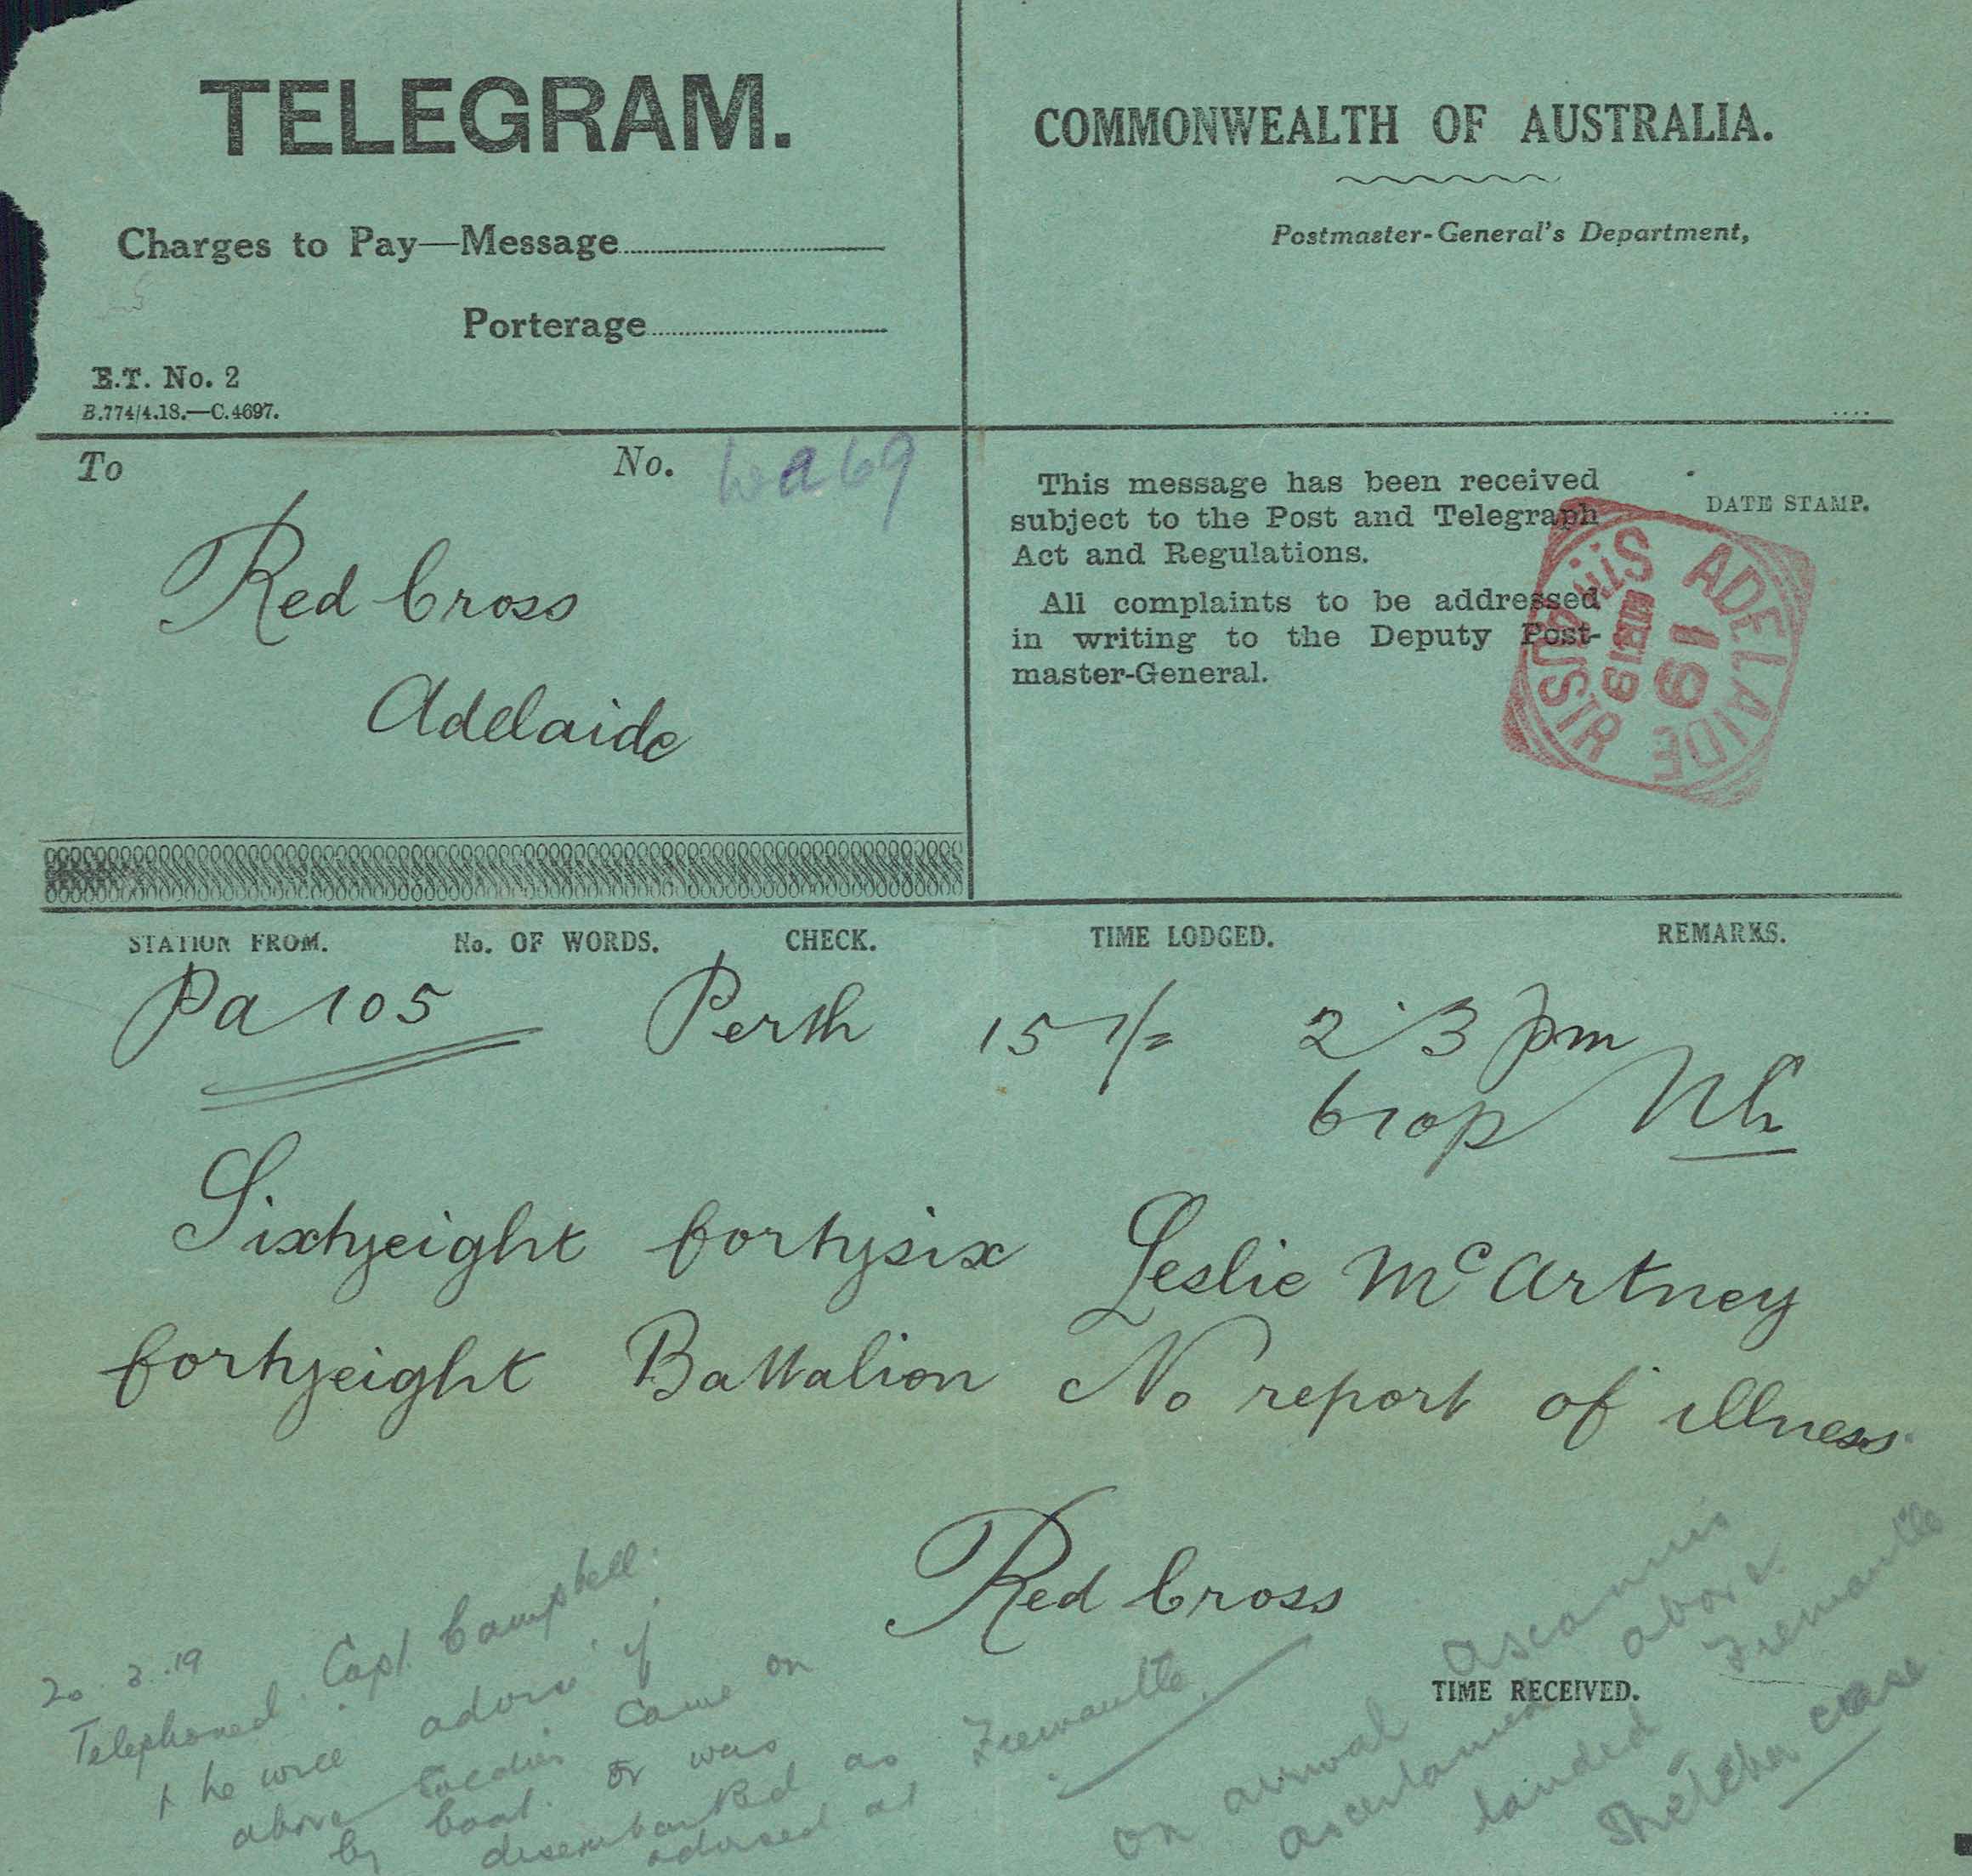 TELEGRAM.
Charges to Pay—Message
Porterage
E.T. No. 2
B.774/4.18.—C.4697.
COMMONWEALTH OF AUSTRALIA.
Postmaster-General's Department,
To No. wa69
Red Cross
Adelaide
This message has been received
subject to the Post and Telegraph
Act and Regulations.
All complaints to be addressed
in writing to the Deputy Post-
master-General.
DATE STAMP.
ADELAIDE
19
19
STH AUSTR
STATION FROM. No. OF WORDS. CHECK. TIME LODGED. REMARKS.
Pa 105 Perth 15 2.3 pm
610p
Sixtyeight fortysix Leslie McArtney
fortyeight Battalion No report of illness
Red Cross
TIME RECEIVED.
20.3.19
Telephoned Capt. Campbell
& he will advise if
above soldier came on
by boat or was
disembarked as Fremantle
advised at
on arrival Ascanius
ascertained above
landed Fremantle
Stretcher case